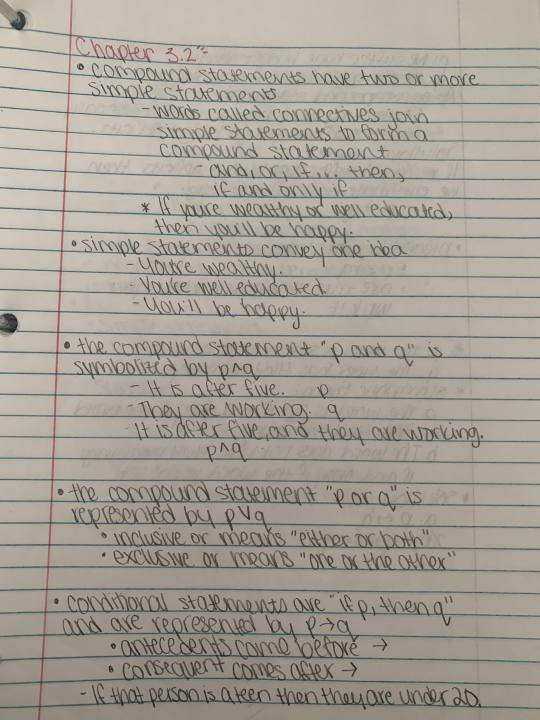 Chapter 3.2:-
• compound statements have two or more
simple statements
- words called connectives join
simple statements to form a
compound statement
- and, or, if... then,
if and only if
* If you're wealthy or well educated,
then you'll be happy.
• simple statements convey one idea
- You're wealthy.
- You're well educated.
- You'll be happy.
• the compound statement "p and q" is
symbolized by p∧q
- It is after five. p
- They are working. q
- It is after five, and they are working.
p∧q
• the compound statement "p or q" is
represented by p∨q
• inclusive or means "either or both"
• exclusive or means "one or the other"
• conditional statements are "if p, then q"
and are represented by p→q
• antecedents come before →
• consequent comes after →
- If that person is a teen then they are under 20.